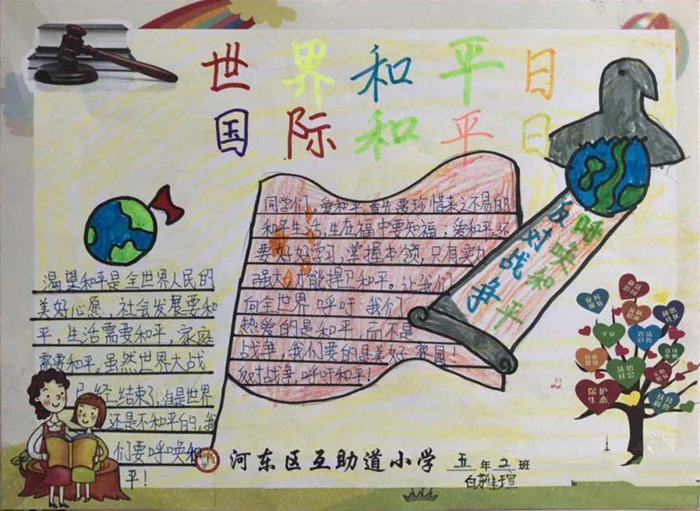 世界和平日
国际和平日
同学们，爱和平，首先要珍惜来之不易的
和平生活，生在福中要知福；爱和平，还
要好好学习，掌握本领，只有努力
强大，才能捍卫和平。让我们
向全世界呼吁，我们
热爱的是和平，而不是
战争，我们要的是美好家园！
反对战争，呼吁和平！
呼唤和平
反对战争
渴望和平是全世界人民的
美好心愿，社会发展要和
平，生活需要和平，家庭
需要和平，虽然世界大战
已经结束了，但是世界
还是不和平的，我
们要呼唤和
平！
平安
法治社会
保护生态
河东区互助道小学 五年2班